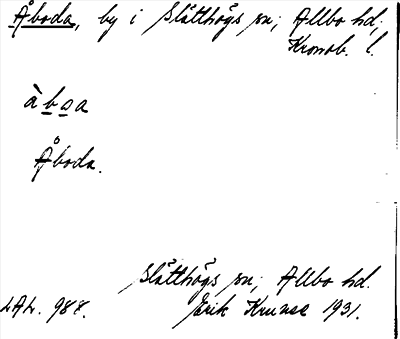 Åboda, by i Slätthögs sn; Allbo hd;
Kronob. l.
àbσa
Åboda.
Slätthögs sn; Allbo hd.
LAL. 988. Erik Kruuse 1931.